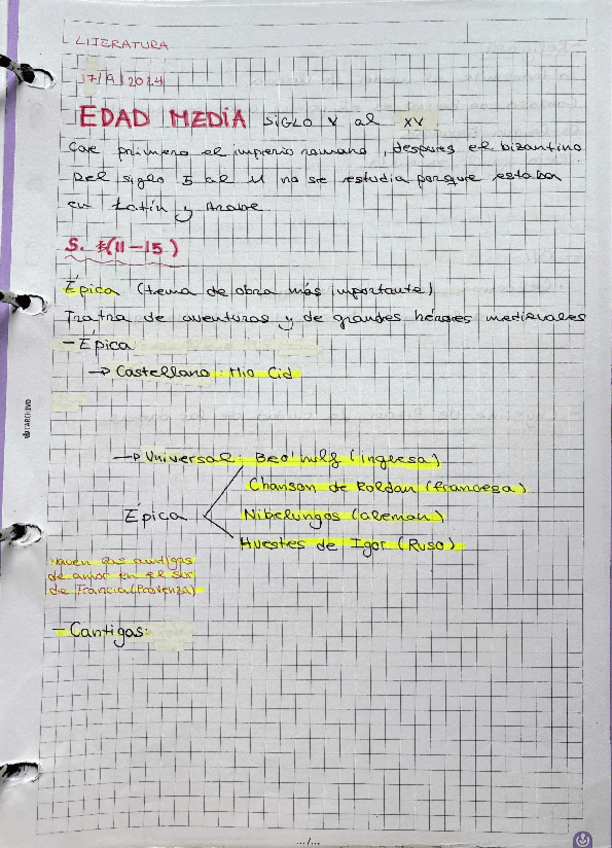 LITERATURA
17/9/2024
EDAD MEDIA SIGLO V al XV
Cae primero el imperio romano, despues el bizantino
Del siglo 5 al 11 no se estudia porque estaba
en Latín y Arabe.
S. (11-15)
Épica (tema de obra más importante)
Tratra de aventuras y de grandes héroes medievales
- Épica
→ Castellano: Mio Cid
→ Universal: Beo'wulf (inglesa)
Chanson de Roldan (francesa)
Épica
Nibelungos (aleman)
Huestes de Igor (Ruso)
Nacen las cantigas
de amor en el sur
de Francia (Provenza)
- Cantigas:
.../...